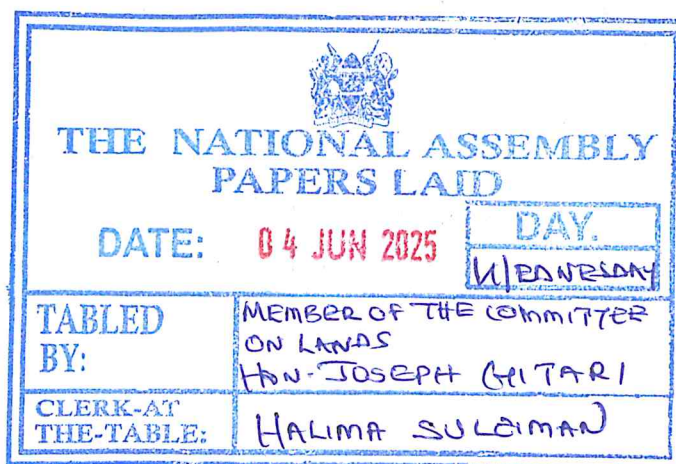 THE NATIONAL ASSEMBLY
PAPERS LAID
DATE: 04 JUN 2025
DAY.
WEDNESDAY
TABLED BY:
MEMBER OF THE COMMITTEE
ON LANDS
HON. JOSEPH GITARI
CLERK-AT THE-TABLE:
HALIMA SULEIMAN